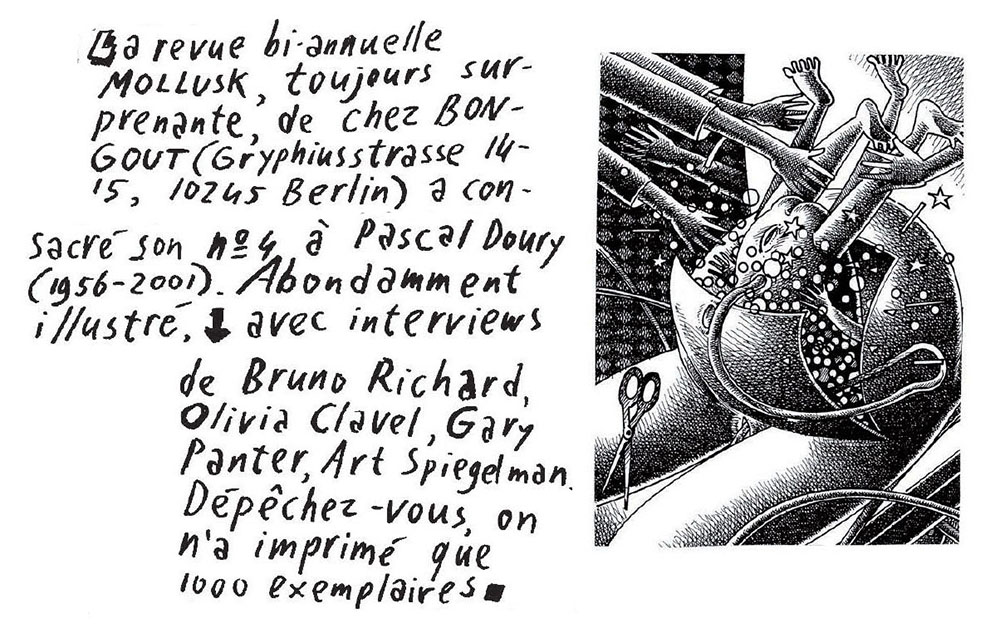 La revue bi-annuelle
MOLLUSK, toujours sur-
prenante, de chez BON-
GOUT (Gryphiusstrasse 14-
15, 10245 Berlin) a con-
sacré son nº4 à Pascal Doury
(1956-2001). Abondamment
illustré, avec interviews
de Bruno Richard,
Olivia Clavel, Gary
Panter, Art Spiegelman.
Dépêchez-vous, on
n'a imprimé que
1000 exemplaires